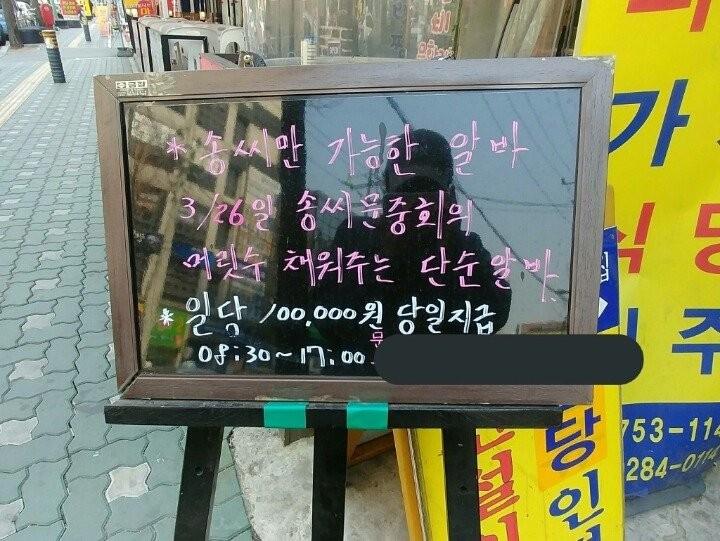 * 송씨만 가능한 알바
3/26일 송씨문중회의
머릿수 채워주는 단순알바
* 일당 100,000원 당일지급
08:30~17:00
문
가
식당
주
753-114
284-0114
당
인